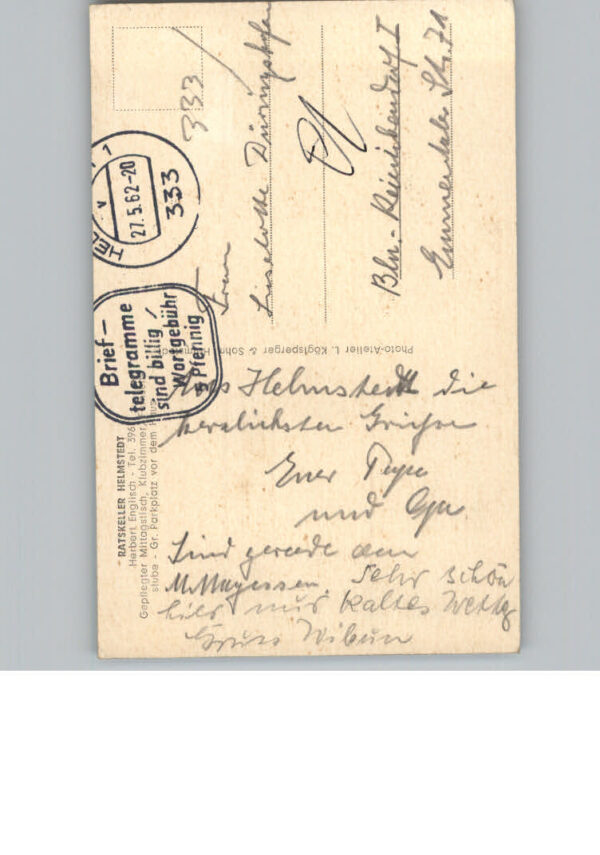 RATSKELLER HELMSTEDT
Herbert Englisch - Tel. 396
Gepflegter Mittagstisch, Klubzimmer,
stube - Gr. Parkplatz vor dem
Photo-Atelier L. Köglsperger & Sohn,
Brief-
telegramme
sind billig /
Wortgebühr
5 Pfennig
HELM
27.5.62-20
333
333
Frau
Liselotte
Bln.- Reinickendorf I
Emmentaler Str. 71
Aus Helmstedt die
herzlichsten Grüße
Euer Papa
und Opa
Sind gerade am
Mittagessen. Sehr schön
hier nur kaltes Wetter
Gruss